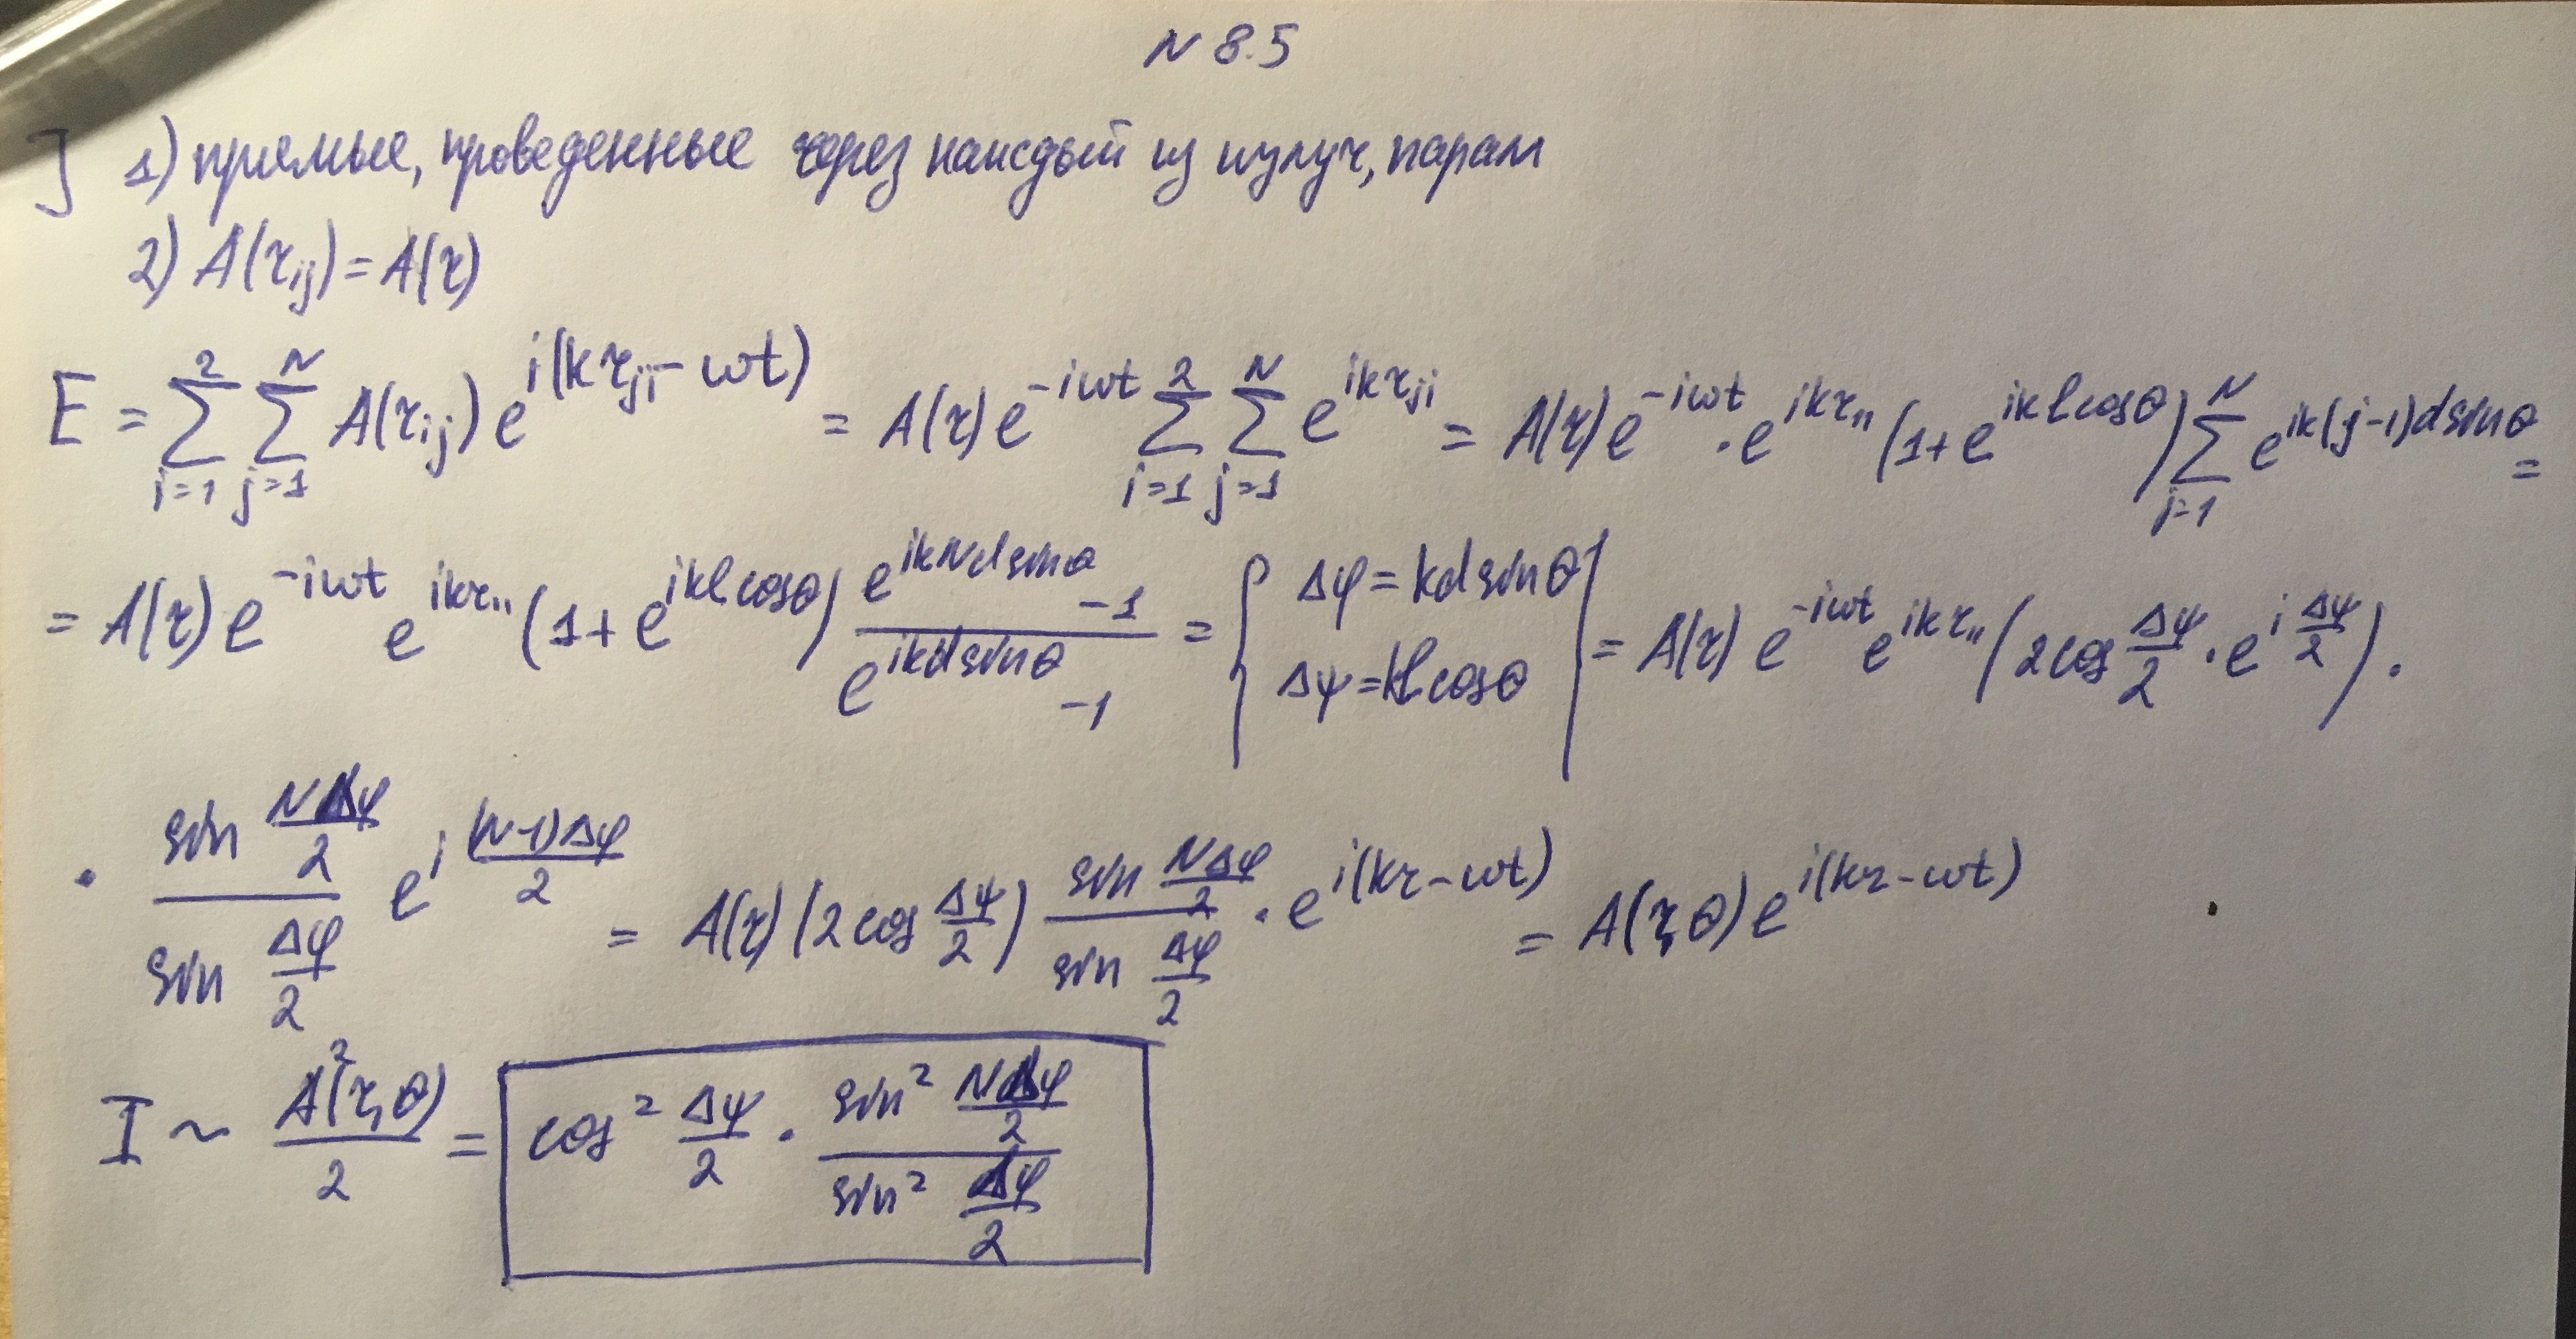 N 8.5
] 1) прямые, проведенные через каждый из излуч, парал
2) A(r_ij) = A(r)
E = ∑_{i=1}^{2} ∑_{j=1}^{N} A(r_ij) e^{i(kr_ji - ωt)} = A(r) e^{-iωt} ∑_{i=1}^{2} ∑_{j=1}^{N} e^{ikr_ji} = A(r) e^{-iωt} · e^{ikr_11} (1 + e^{ikl cosθ}) ∑_{j=1}^{N} e^{ik(j-1)d sinθ} =
= A(r) e^{-iωt} e^{ikr_11} (1 + e^{ikl cosθ}) (e^{ikNd sinθ} - 1)/(e^{ikd sinθ} - 1) = | Δφ = kd sinθ, Δψ = kl cosθ | = A(r) e^{-iωt} e^{ikr_11} (2cos Δψ/2 · e^{i Δψ/2}) ·
· (sin NΔφ/2)/(sin Δφ/2) e^{i (N-1)Δφ/2} = A(r) (2cos Δψ/2) (sin NΔφ/2)/(sin Δφ/2) · e^{i(kr - ωt)} = A(r, θ) e^{i(kr - ωt)}
I ~ A²(r, θ)/2 = cos² Δψ/2 · (sin² NΔφ/2)/(sin² Δφ/2)